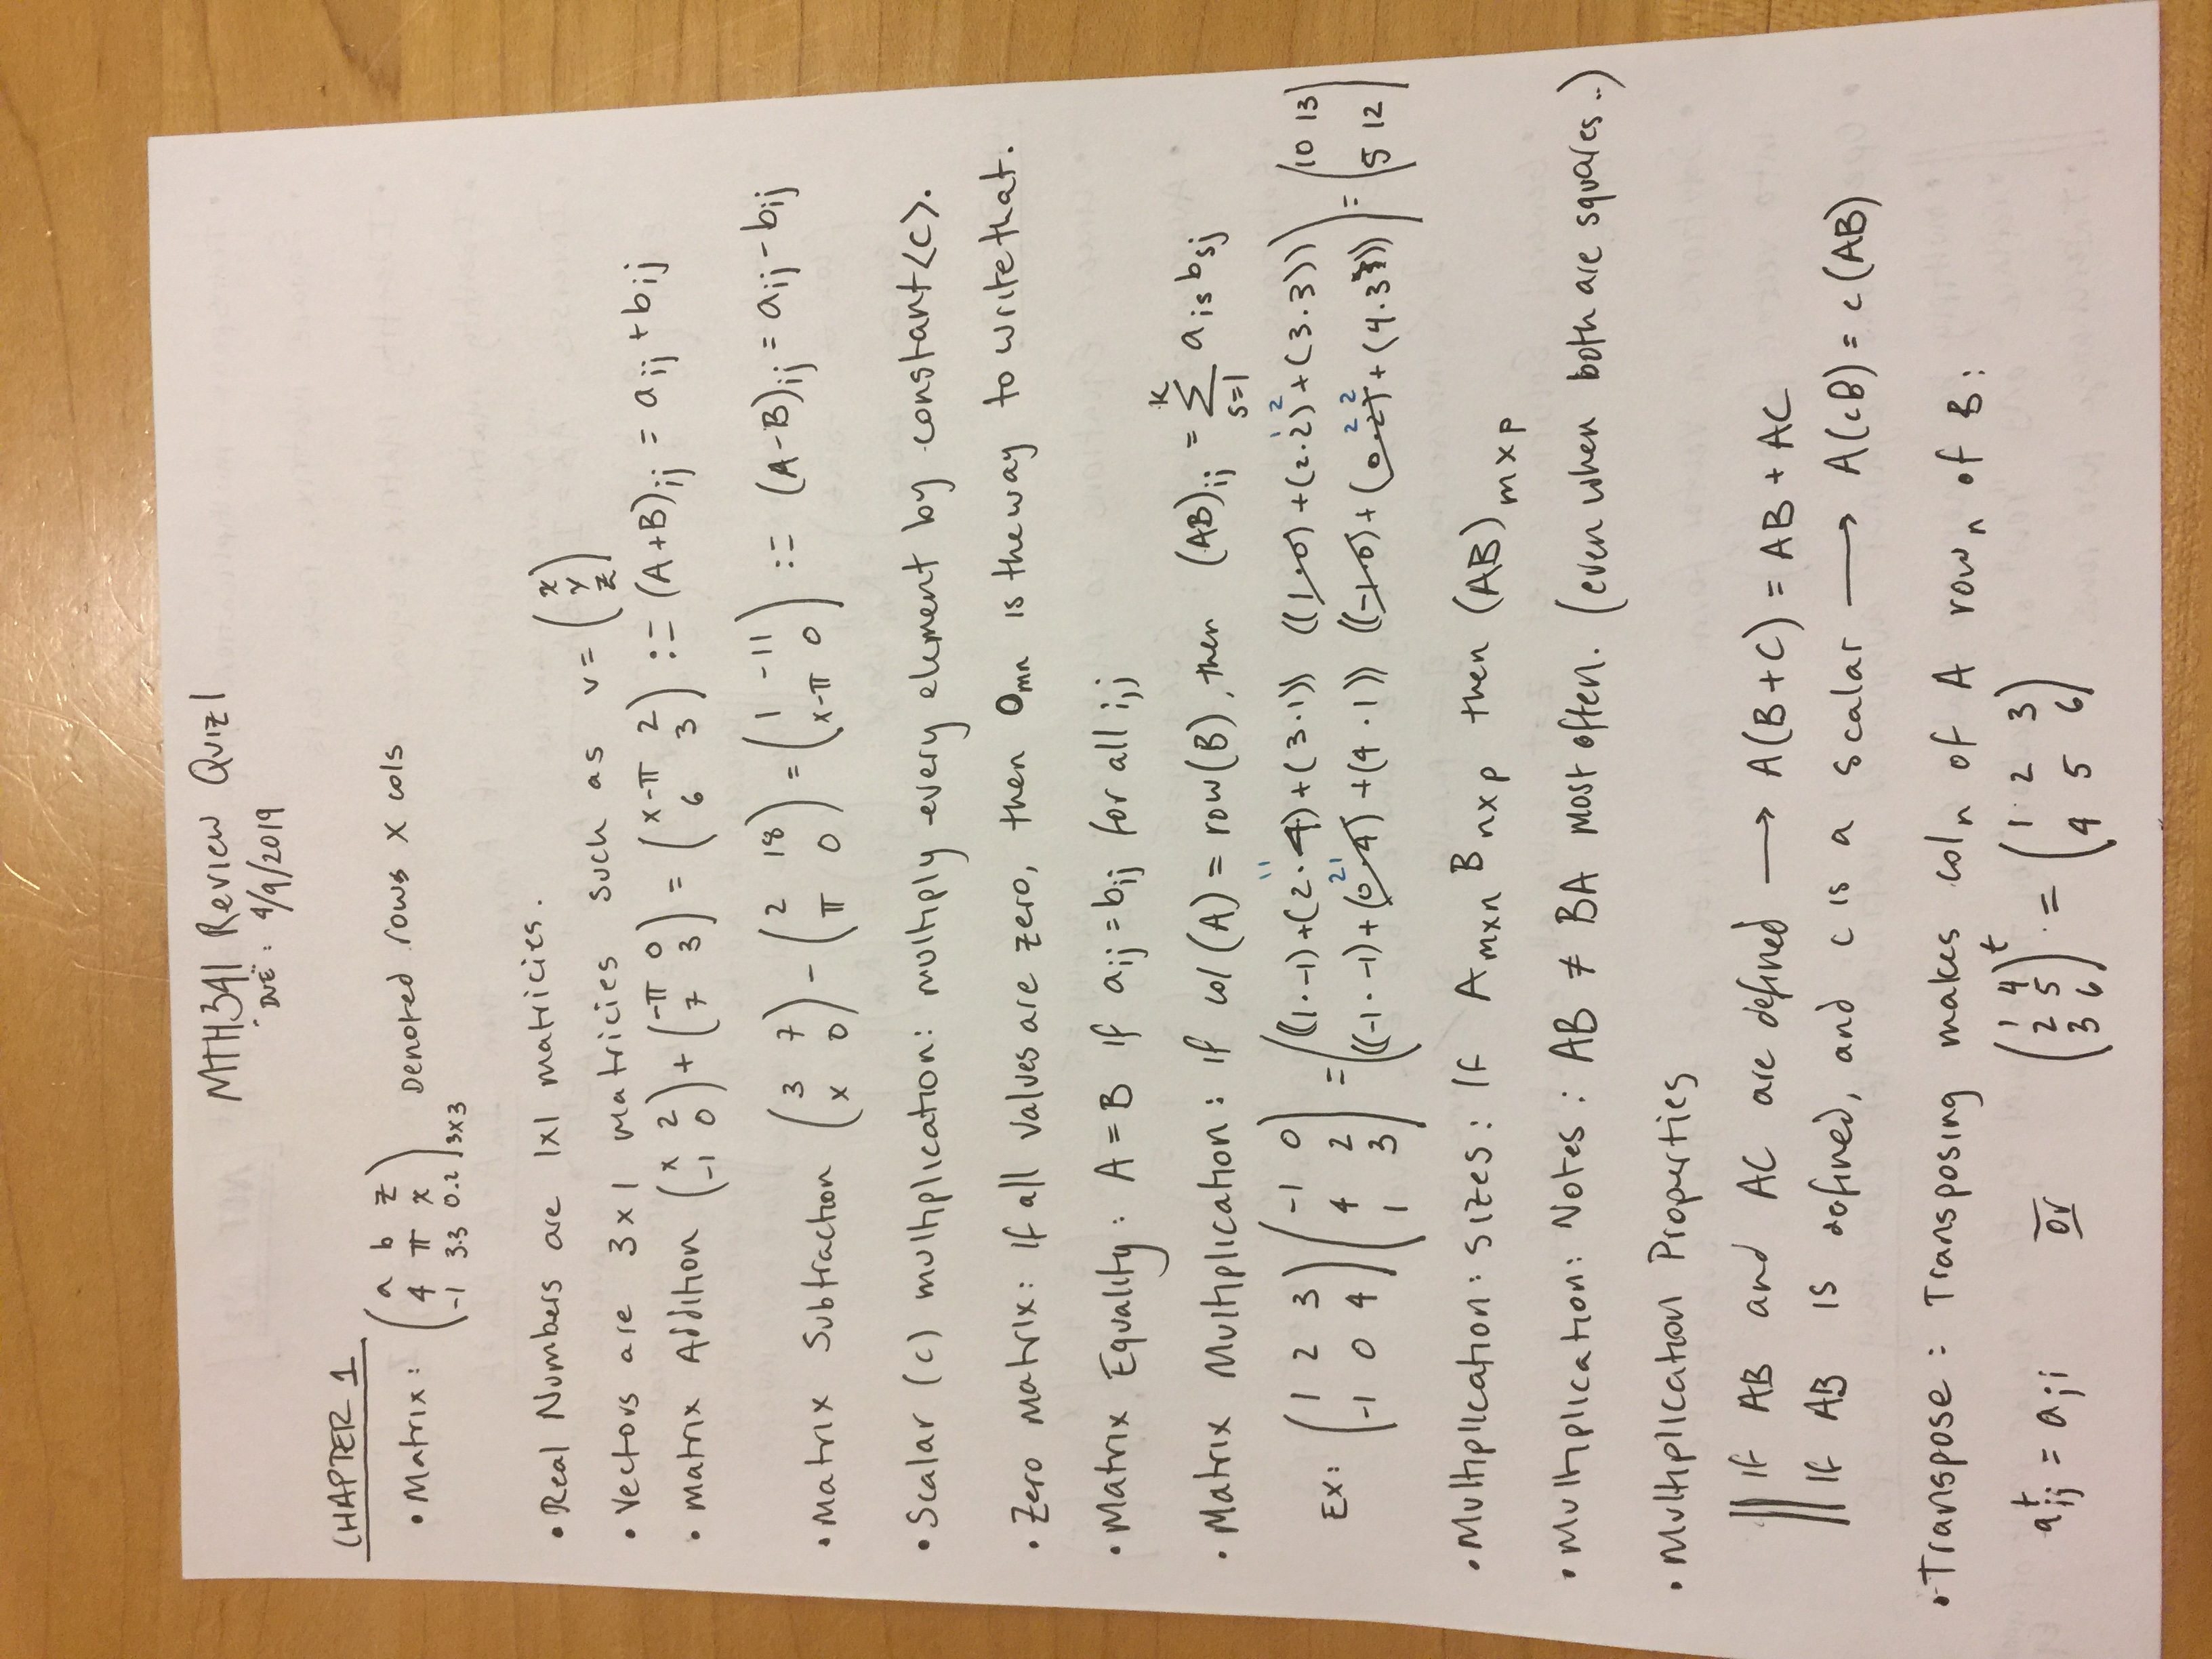 MTH341 Review Quiz 1
"DUE": 4/9/2019
CHAPTER 1
• Matrix: (a b z; 4 π x; -1 3.3 0.2)3x3 Denoted rows x cols
• Real Numbers are 1x1 matricies.
• Vectors are 3x1 matricies such as v = (x; y; z)
• Matrix Addition (x 2; -1 0) + (-π 0; 7 3) = (x-π 2; 6 3) := (A+B)ij = aij + bij
• Matrix Subtraction (3 7; x 0) - (2 18; π 0) = (1 -11; x-π 0) := (A-B)ij = aij - bij
• Scalar (c) multiplication: multiply every element by constant <c>.
• Zero matrix: If all values are zero, then 0mn is the way to write that.
• Matrix Equality: A = B if aij = bij for all i,j
• Matrix Multiplication: if col(A) = row(B), then (AB)ij = Σ k s=1 ais bsj
Ex: (1 2 3; -1 0 4) (-1 0; 4 2; 1 3) = (((1·-1)+(2·4)+(3·1)) ((1·0)+(2·2)+(3·3)); ((-1·-1)+(0·4)+(4·1)) ((-1·0)+(0·2)+(4·3))) = (10 13; 5 12)
11 12
21 22
• Multiplication: sizes: If Amxn Bnxp then (AB)mxp
• Multiplication: Notes: AB ≠ BA most often. (even when both are squares..)
• Multiplication Properties
If AB and AC are defined → A(B+C) = AB + AC
If AB is defined, and c is a scalar → A(cB) = c(AB)
• Transpose: Transposing makes coln of A rown of B:
a^t ij = aji or (1 4; 2 5; 3 6)^t = (1 2 3; 4 5 6)